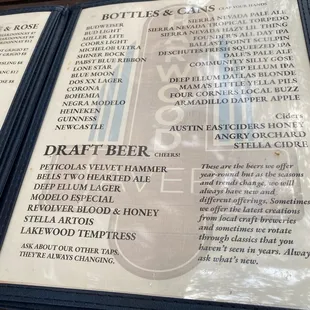 & ROSE
BOTTLES & CANS
BUDWEISER
BUD LIGHT
MILLER LITE
COORS LIGHT
MICHELOB ULTRA
SHINER BOCK
PABST BLUE RIBBON
LONE STAR
BLUE MOON
DOS XX LAGER
CORONA
BOHEMIA
NEGRA MODELO
HEINEKEN
GUINNESS
NEWCASTLE
SIERRA NEVADA PALE ALE
SIERRA NEVADA TROPICAL TORPEDO
SIERRA NEVADA HAZY LIL THING
FOUNDER'S ALL DAY IPA
BALLAST POINT SCULPIN
DESCHUTES FRESH SQUEEZED IPA
DALE'S PALE ALE
COMMUNITY SILLY GOSE
DEEP ELLUM IPA
DEEP ELLUM DALLAS BLONDE
MAMA'S LITTLE YELLA PILS
FOUR CORNERS LOCAL BUZZ
ARMADILLO DAPPER APPLE
Ciders
AUSTIN EASTCIDERS HONEY
ANGRY ORCHARD
STELLA CIDRE
DRAFT BEER CHEERS!
PETICOLAS VELVET HAMMER
BELLS TWO HEARTED ALE
DEEP ELLUM LAGER
MODELO ESPECIAL
REVOLVER BLOOD & HONEY
STELLA ARTOIS
LAKEWOOD TEMPTRESS
ASK ABOUT OUR OTHER TAPS.
THEY'RE ALWAYS CHANGING.
These are the beers we offer
year-round but as the seasons
and trends change, we will
always have new and
different offerings. Sometimes
we offer the latest creations
from local craft breweries
and sometimes we rotate
through classics that you
haven't seen in years. Always
ask what's new.